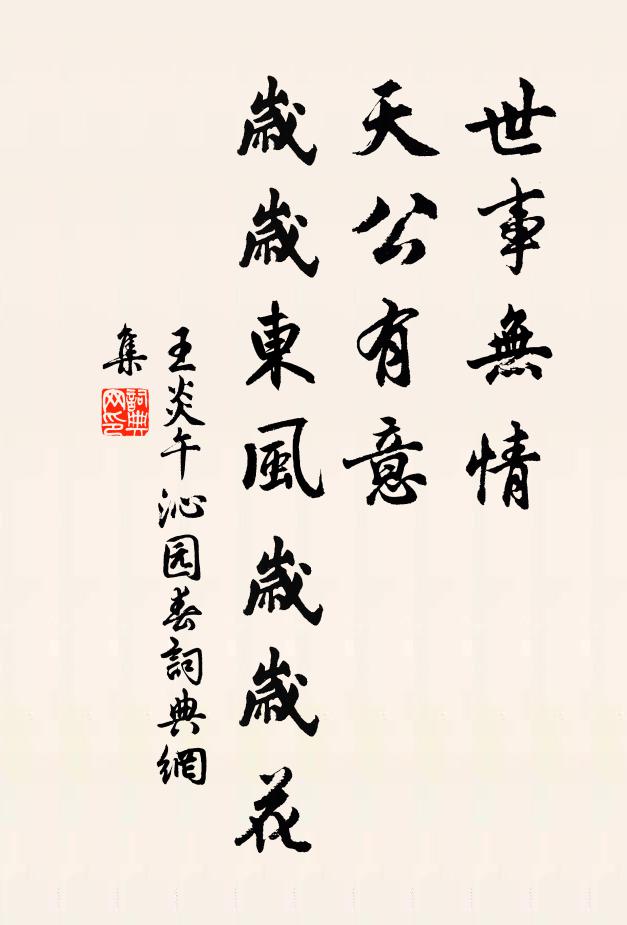 世事無情
天公有意
歳歳東風歳歳花
王炎午沁园春詞典網
集
詞典网印